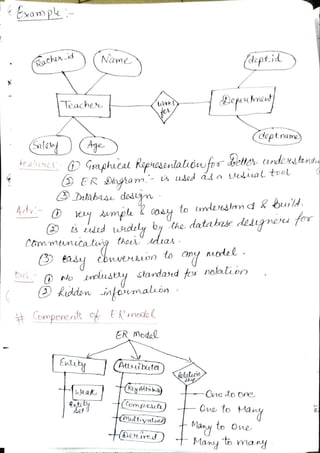 Example :-
Name
dept.id
Teacher
works for
Department
Salary
Age
dept name
Features
① Graphical Representation for Better understandi
② ER Diagram :- is used as a visual tool
③ Database design.
Adv:- ① very simple & easy to understand & build.
② is used widely by the database designers for
communicating their ideas.
③ easy conversion to any model.
Dis:- ① No industry standard for notation
② hidden information.
# Components of ER model
ER model
Entity
Attributes
Relation ship
Weak Entity Set
Key Attribute
Composite
Multivalued
Derived
One to one
One to Many
Many to One
Many to many